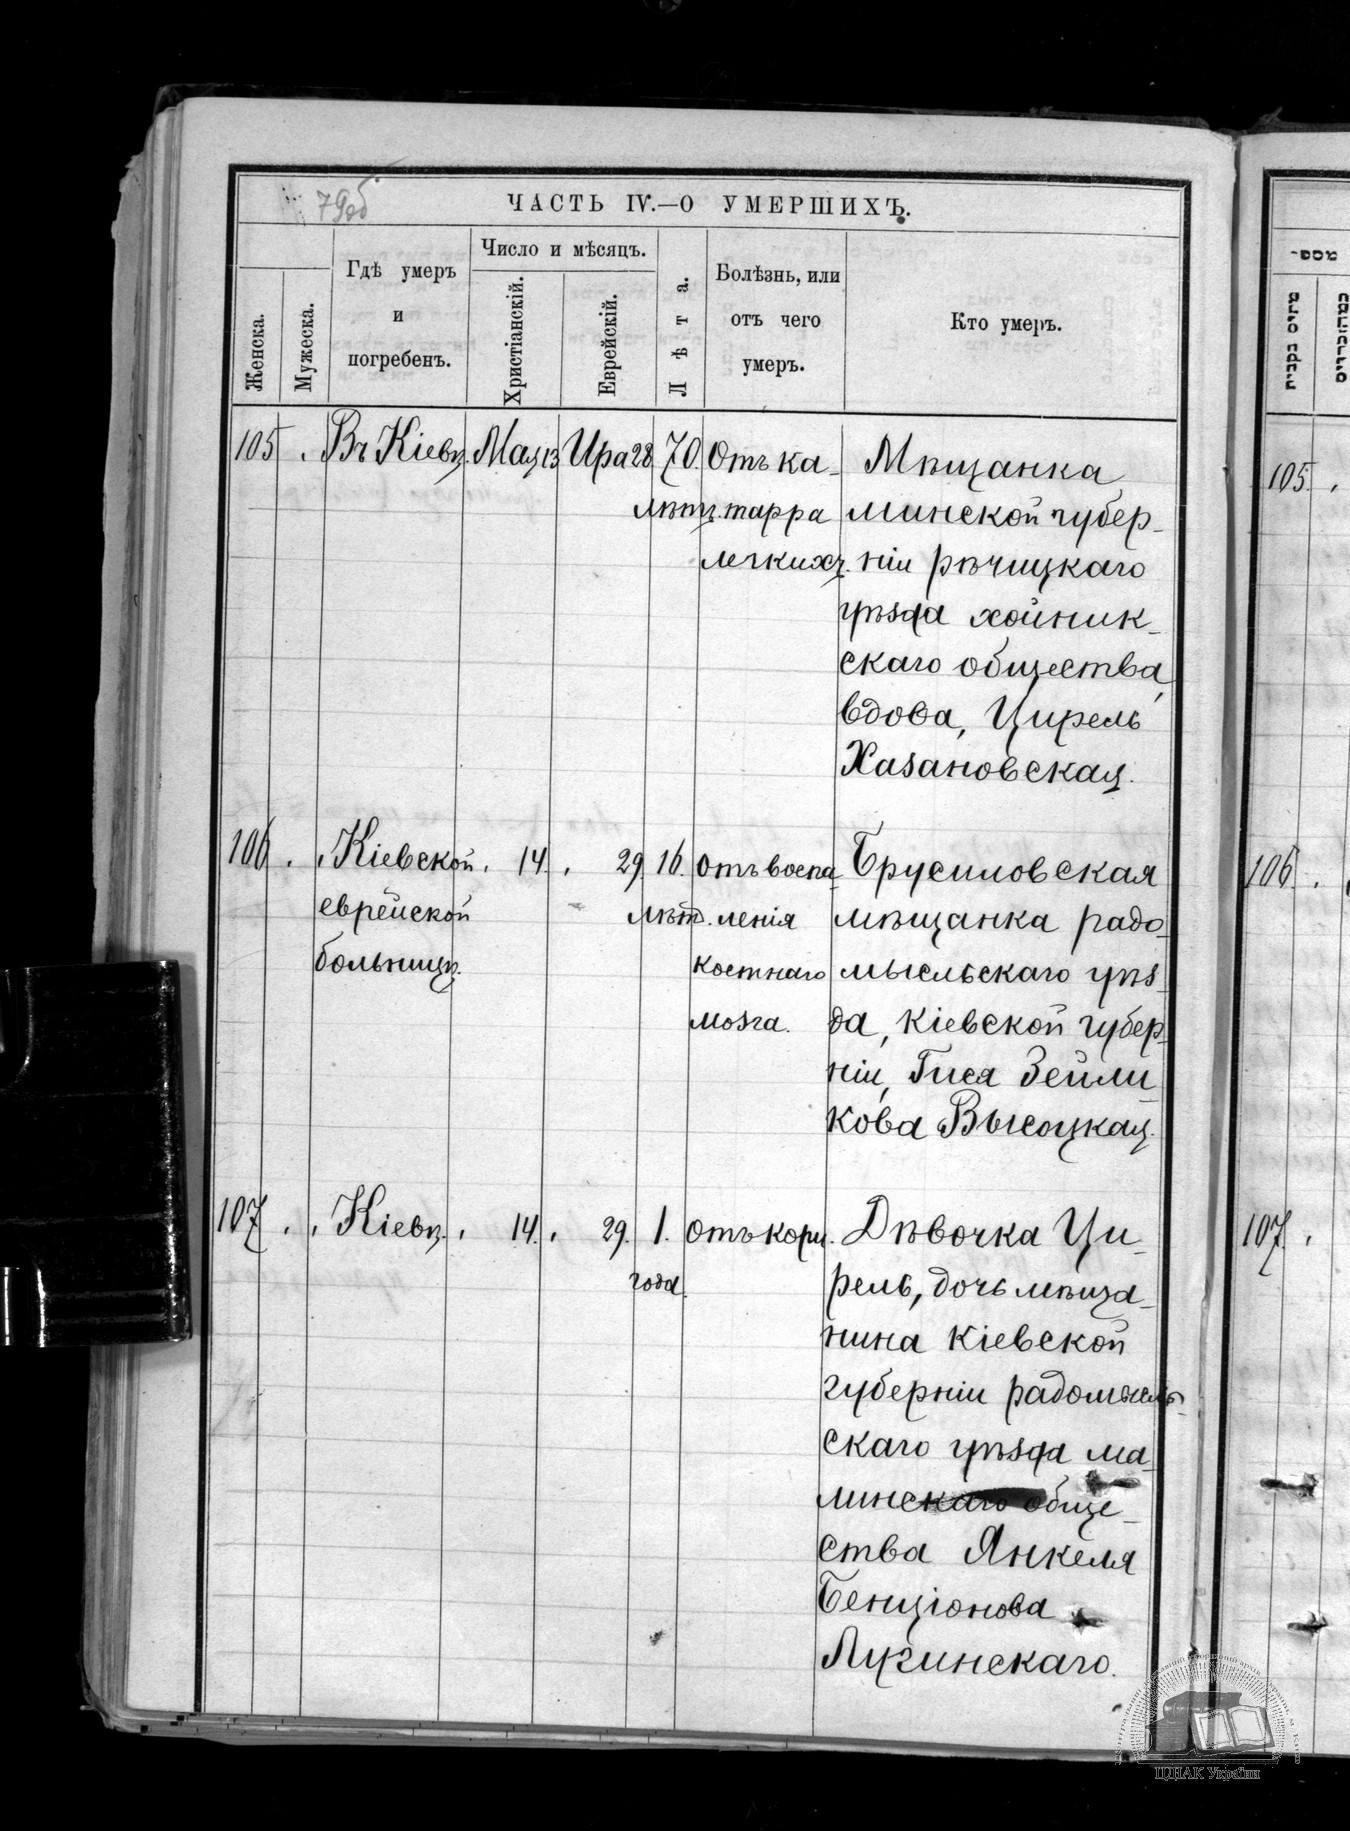 79об
ЧАСТЬ IV.—О УМЕРШИХЪ.
Женска.
Мужеска.
Гдѣ умеръ
и
погребенъ.
Число и мѣсяцъ.
Христіанскій.
Еврейскій.
Лѣта.
Болѣзнь, или
отъ чего
умеръ.
Кто умеръ.
105 . Въ Кіевѣ. Мая 13 Ира 28 70. Отъ ка-
лѣтъ. тарра
легкихъ.
Мѣщанка
минской губер-
ніи рѣчицкаго
уѣзда хойник-
скаго общества,
вдова, Цирель
Хазановская.
106 . , Кіевской . 14. . 29. 16. отъ воспа-
еврейской лѣтъ. ленія
больницѣ. костнаго
мозга.
Брусиловская
мѣщанка радо-
мысльскаго уѣз-
да, кіевской губер-
ніи, Гися Зейли-
кова Высоцкая.
107 . , Кіевѣ. . 14. . 29. 1. отъ кори.
года.
Дѣвочка Ци-
рель, дочь мѣща-
нина кіевской
губерніи радомысль-
скаго уѣзда ма-
линскаго обще-
ства Янкеля
Бенціонова
Лугинскаго.
מספ־
מהים נקבות
105. .
106 .
107. .
ЦДІАК України